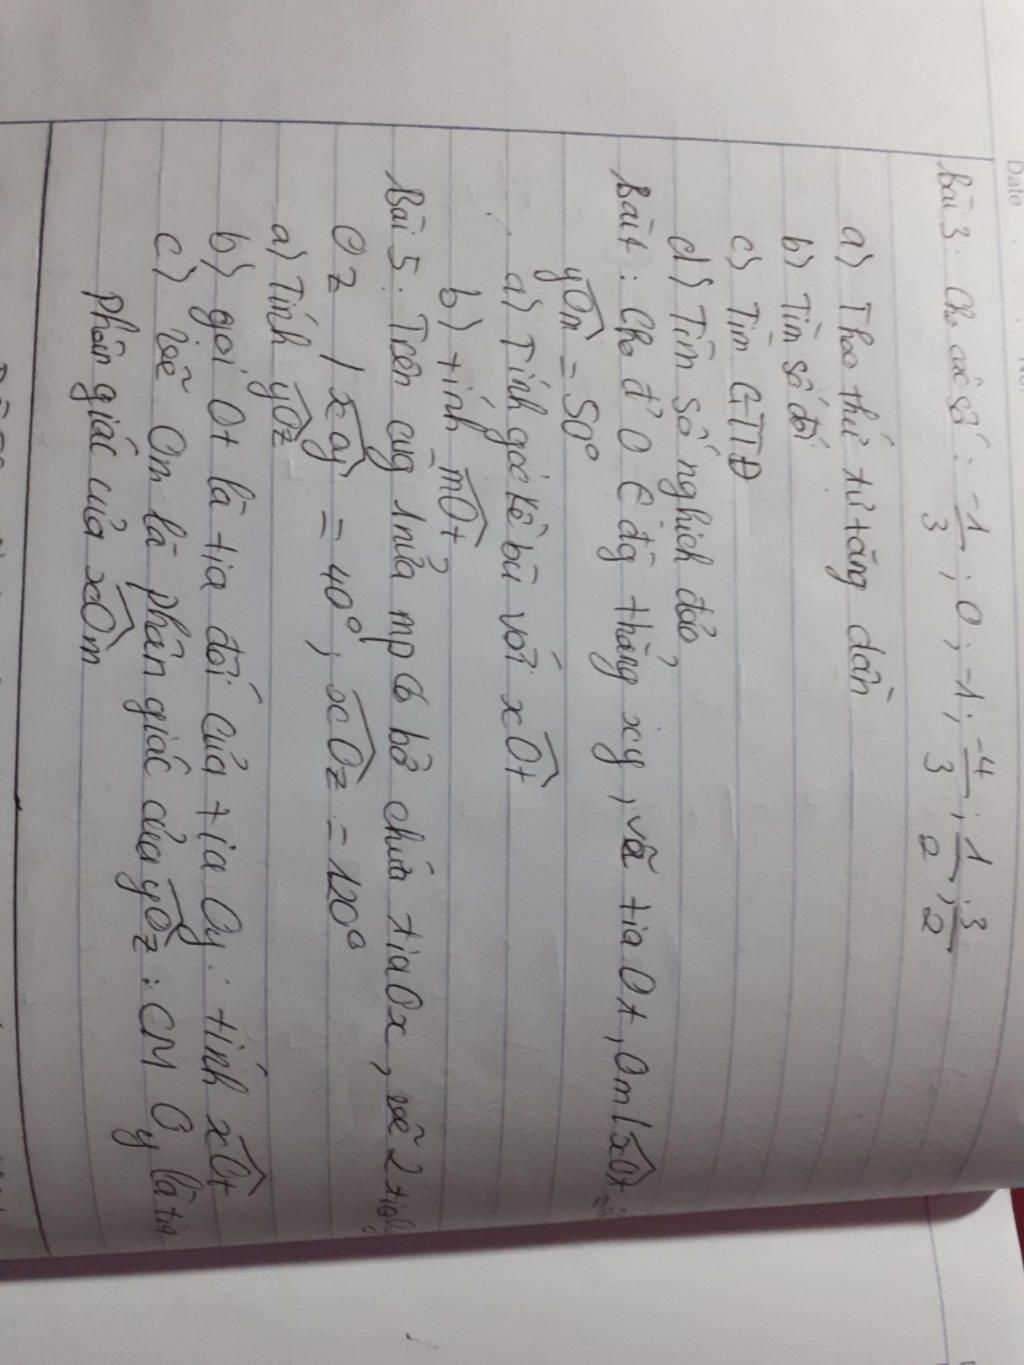 Date
Bài 3. Cho các số: -1/3 ; 0 ; -1 ; -4/3 ; 1/2 ; 3/2
a) Theo thứ tự tăng dần
b) Tìm số đối
c) Tìm GTTĐ
d) Tìm số nghịch đảo
Bài 4: Cho đ' O ∈ đg thẳng xy, vẽ tia Ot, Om / xOt =
yOm = 50°
a) Tính góc kề bù với xOt
b) tính mOt
Bài 5: Trên cùg 1 nửa mp có bờ chứa tia Ox, vẽ 2 tia
Oz / xOy = 40°, xOz = 120°
a) Tính yOz
b) gọi Ot là tia đối của tia Oy. tính xOt
c) vẽ Om là phân giác của yOz : CM Oy là tia
phân giác của xOm